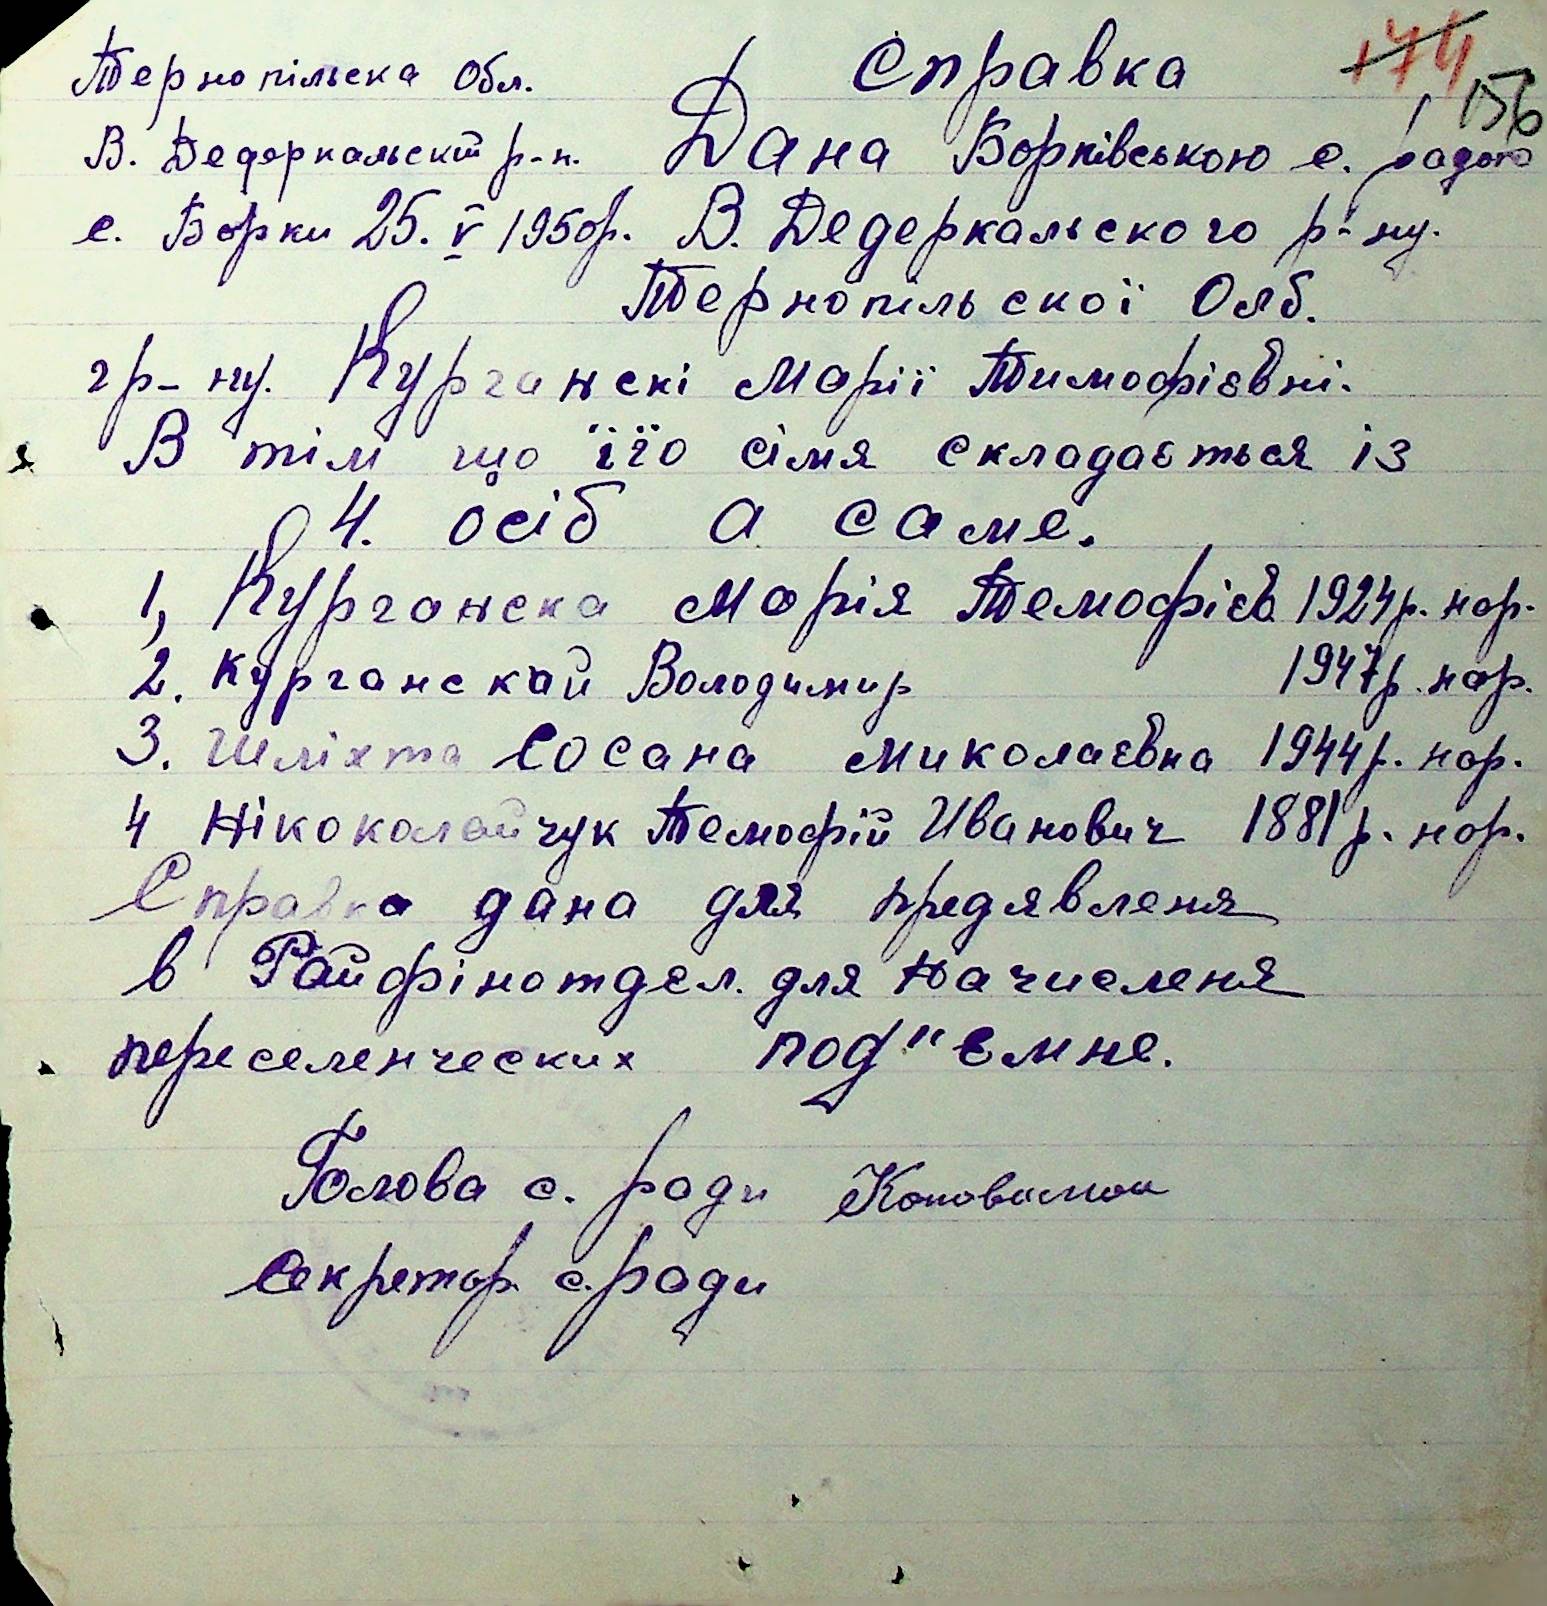 Справка
174
156
Тернопільска Обл.
В. Дедеркальский р-н.
с. Борки 25. V 1950р.
Дана Борківською с. радою
В. Дедеркальского р-ну.
Тернопільскої Олб.
гр-ну. Курганскі Марії Тимофієвні.
В тім що їїо сімя складається із
4. осіб а саме.
1, Курганска Марія Темофієв 1924р. нар.
2. Курганскай Володимир 1947р. нар.
3. Шліхта Сосана Миколаєвна 1944р. нар.
4 Нікоколайчук Темофій Иванович 1881р. нар.
Справка дана для предявленя
в Райфінотдєл. для начисленя
переселенческих под"ємне.
Голова с. ради
Секретар с. ради